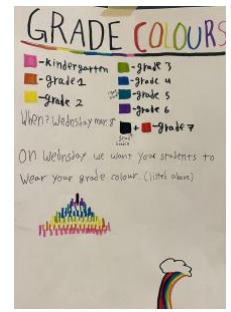 GRADE COLOURS
-kindergarten
-grade 1
-grade 2
-grade 3
-grade 4
-grade 5
-grade 6
+ -grade 7
When? Wedesday mar. 8
On Wednsday we want your students to
Wear your grade colour (listed above)